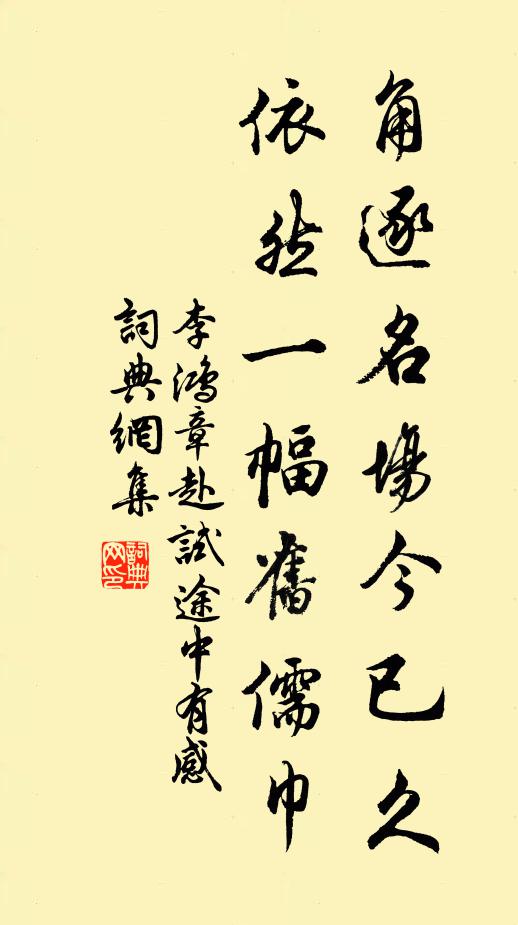 角逐名場今已久
依然一幅舊儒巾
李鴻章赴試途中有感
詞典網集
詞典網印